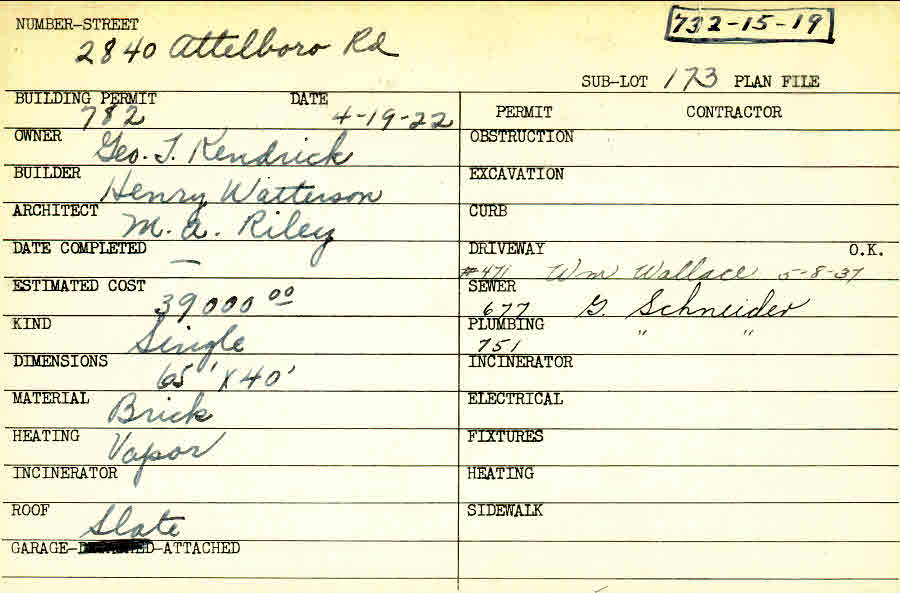 NUMBER-STREET
732-15-19
2840 Attelboro Rd
SUB-LOT 173 PLAN FILE
BUILDING PERMIT DATE
782 4-19-22
PERMIT CONTRACTOR
OWNER Geo. T. Kendrick
OBSTRUCTION
BUILDER Henry Watterson
EXCAVATION
ARCHITECT M. A. Riley
CURB
DATE COMPLETED —
DRIVEWAY O.K.
#471 Wm Wallace 5-8-37
ESTIMATED COST 39000 00
SEWER
677 G. Schneider
KIND Single
PLUMBING " "
751
DIMENSIONS 65' X 40'
INCINERATOR
MATERIAL Brick
ELECTRICAL
HEATING Vapor
FIXTURES
INCINERATOR
HEATING
ROOF Slate
SIDEWALK
GARAGE- -ATTACHED